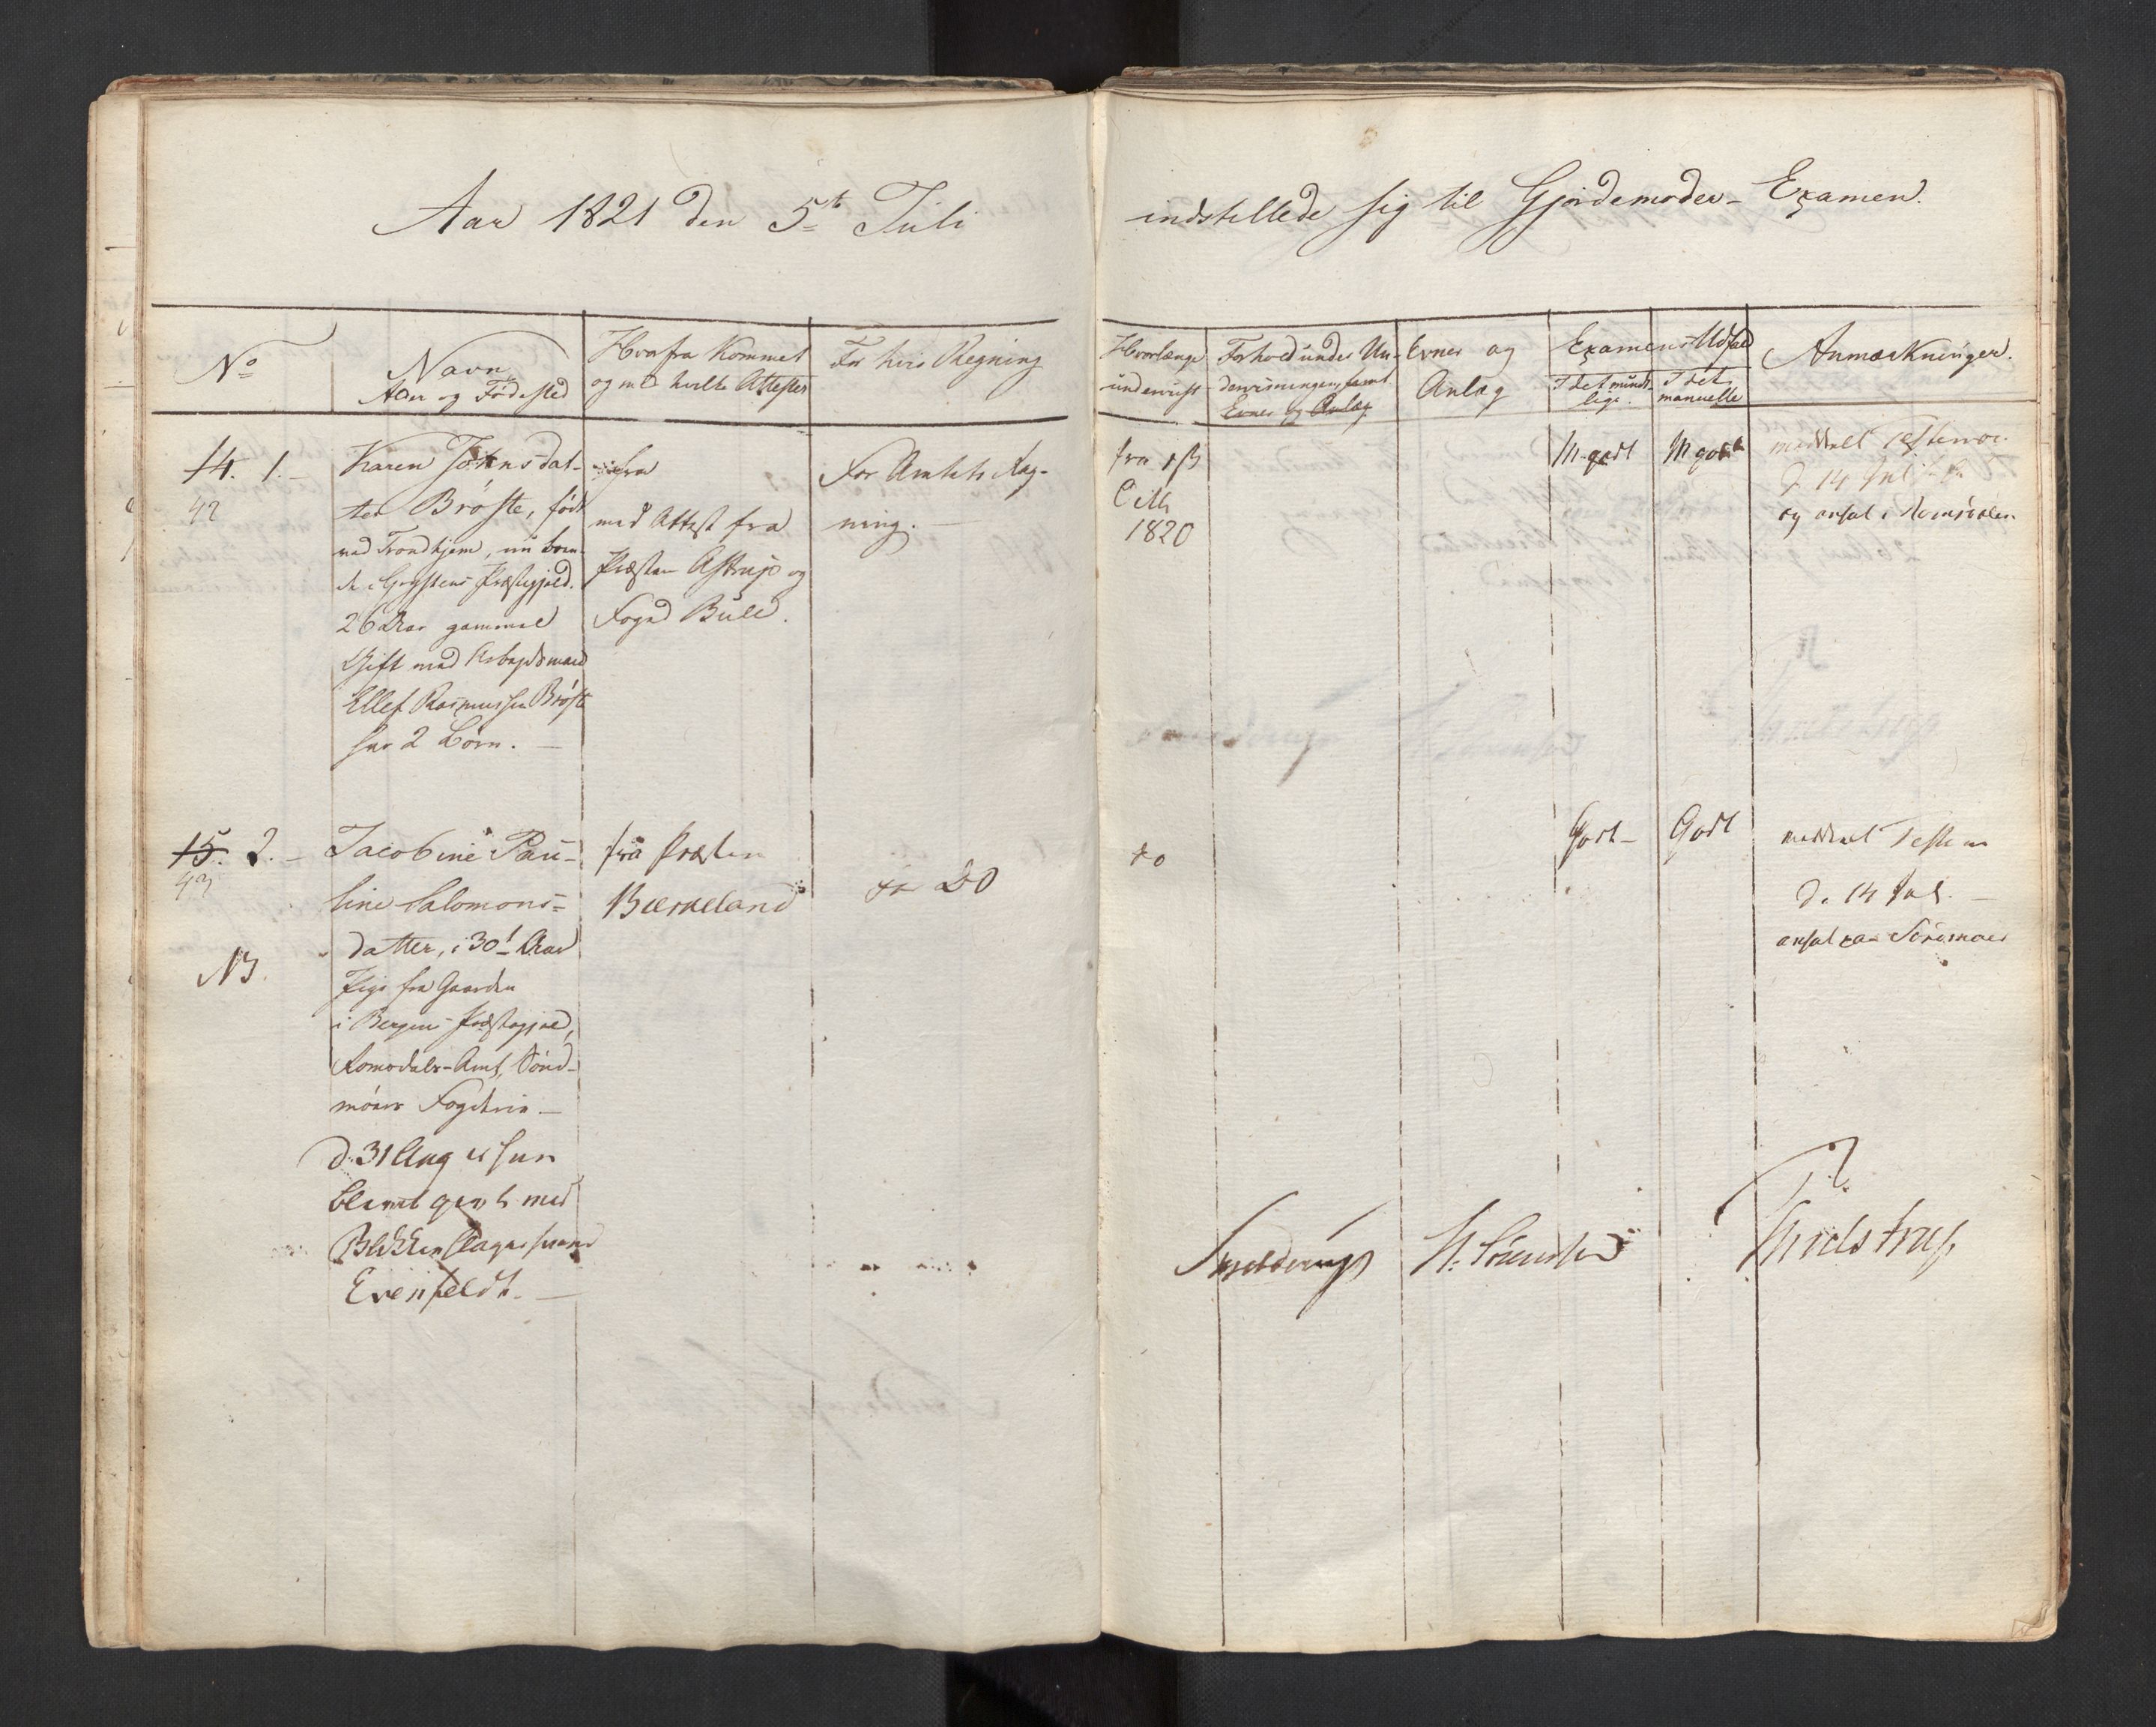 Aar 1821 den 5te Juli
indstillede sig til Gjordemoder-Examen.
No
Navn
Alder og Födested
Hvorfra Kommet
og med hvilke Attester
For hvis Regning
Hvorlænge
underviist
Forhold under Un-
dervisningen, samt
Evner og Anlæg
Evner og
Anlæg
Examens Udfald
I det münd-
lige.
I det
manuelle
Anmærkninger.
14. 1.
42
Karen Johnsdat-
ter Bröste, födt
ved Trondhjem, nu boen-
de i Præstegjeld.
26 Aar gammel
Gift med Arbejdsmand
Ellef Rasmussen Bröste
har 2 Börn.
fra
med Attest fra
Præsten Astrup og
Foged Bull.
For Amtets Reg-
ning.
fra 1ste
1820
M. godt
M godt
meddelt Testimon.
d 14 Juli
og ansat i Romsdalen
15. 2.
43
NB.
Jacobine Pau-
line Salomons-
datter, i 30t Aar
Pige fra Gaarden
i Bergens Præstegjeld,
Romsdals-Amt, Sönd-
möers Fogderie
d. 31 Aug er hun
blevet givt med
Blikkenslager
Evenfeldt.
fra Præsten
Buskeland
do
do
Godt
Godt
meddelt Testim
d. 14 Jul.
ansat paa Söndmöer
M. Sörensen
Thulstrup